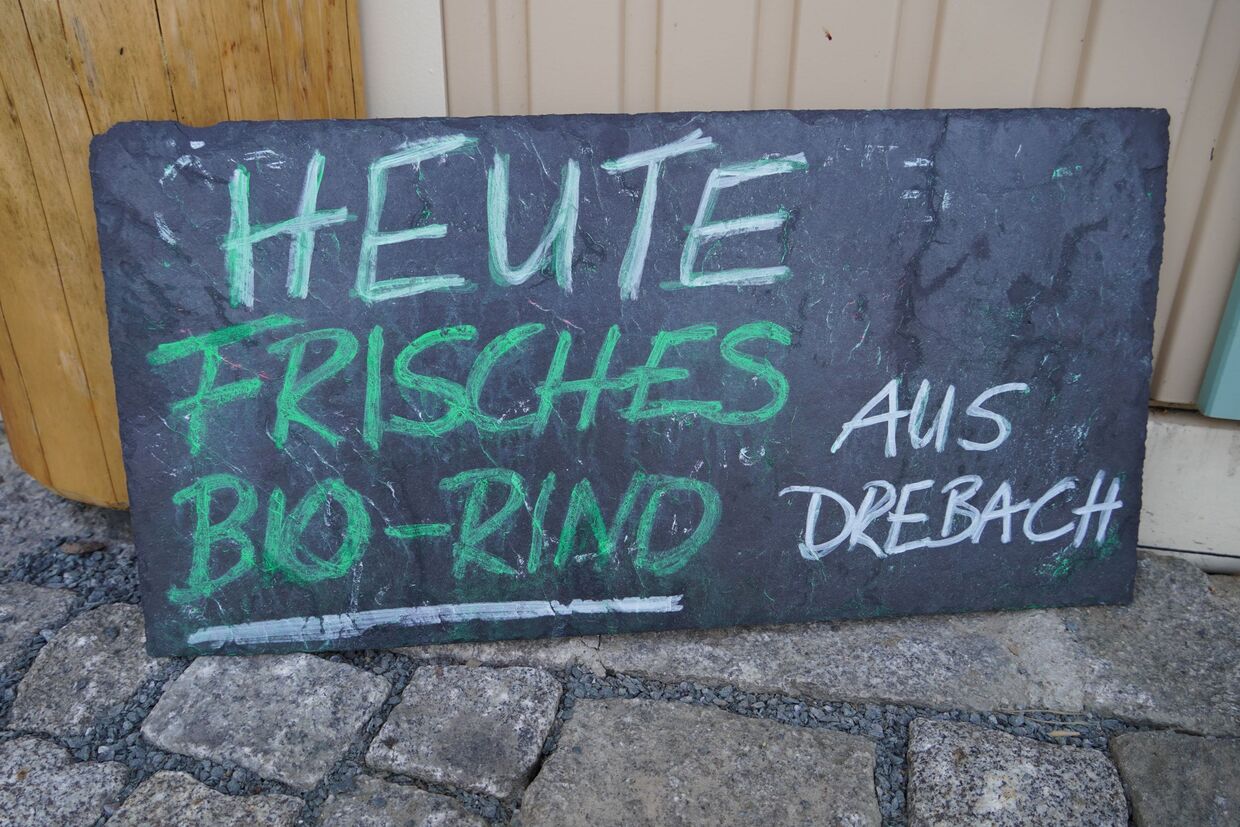 HEUTE
FRISCHES
BIO-RIND
AUS
DREBACH